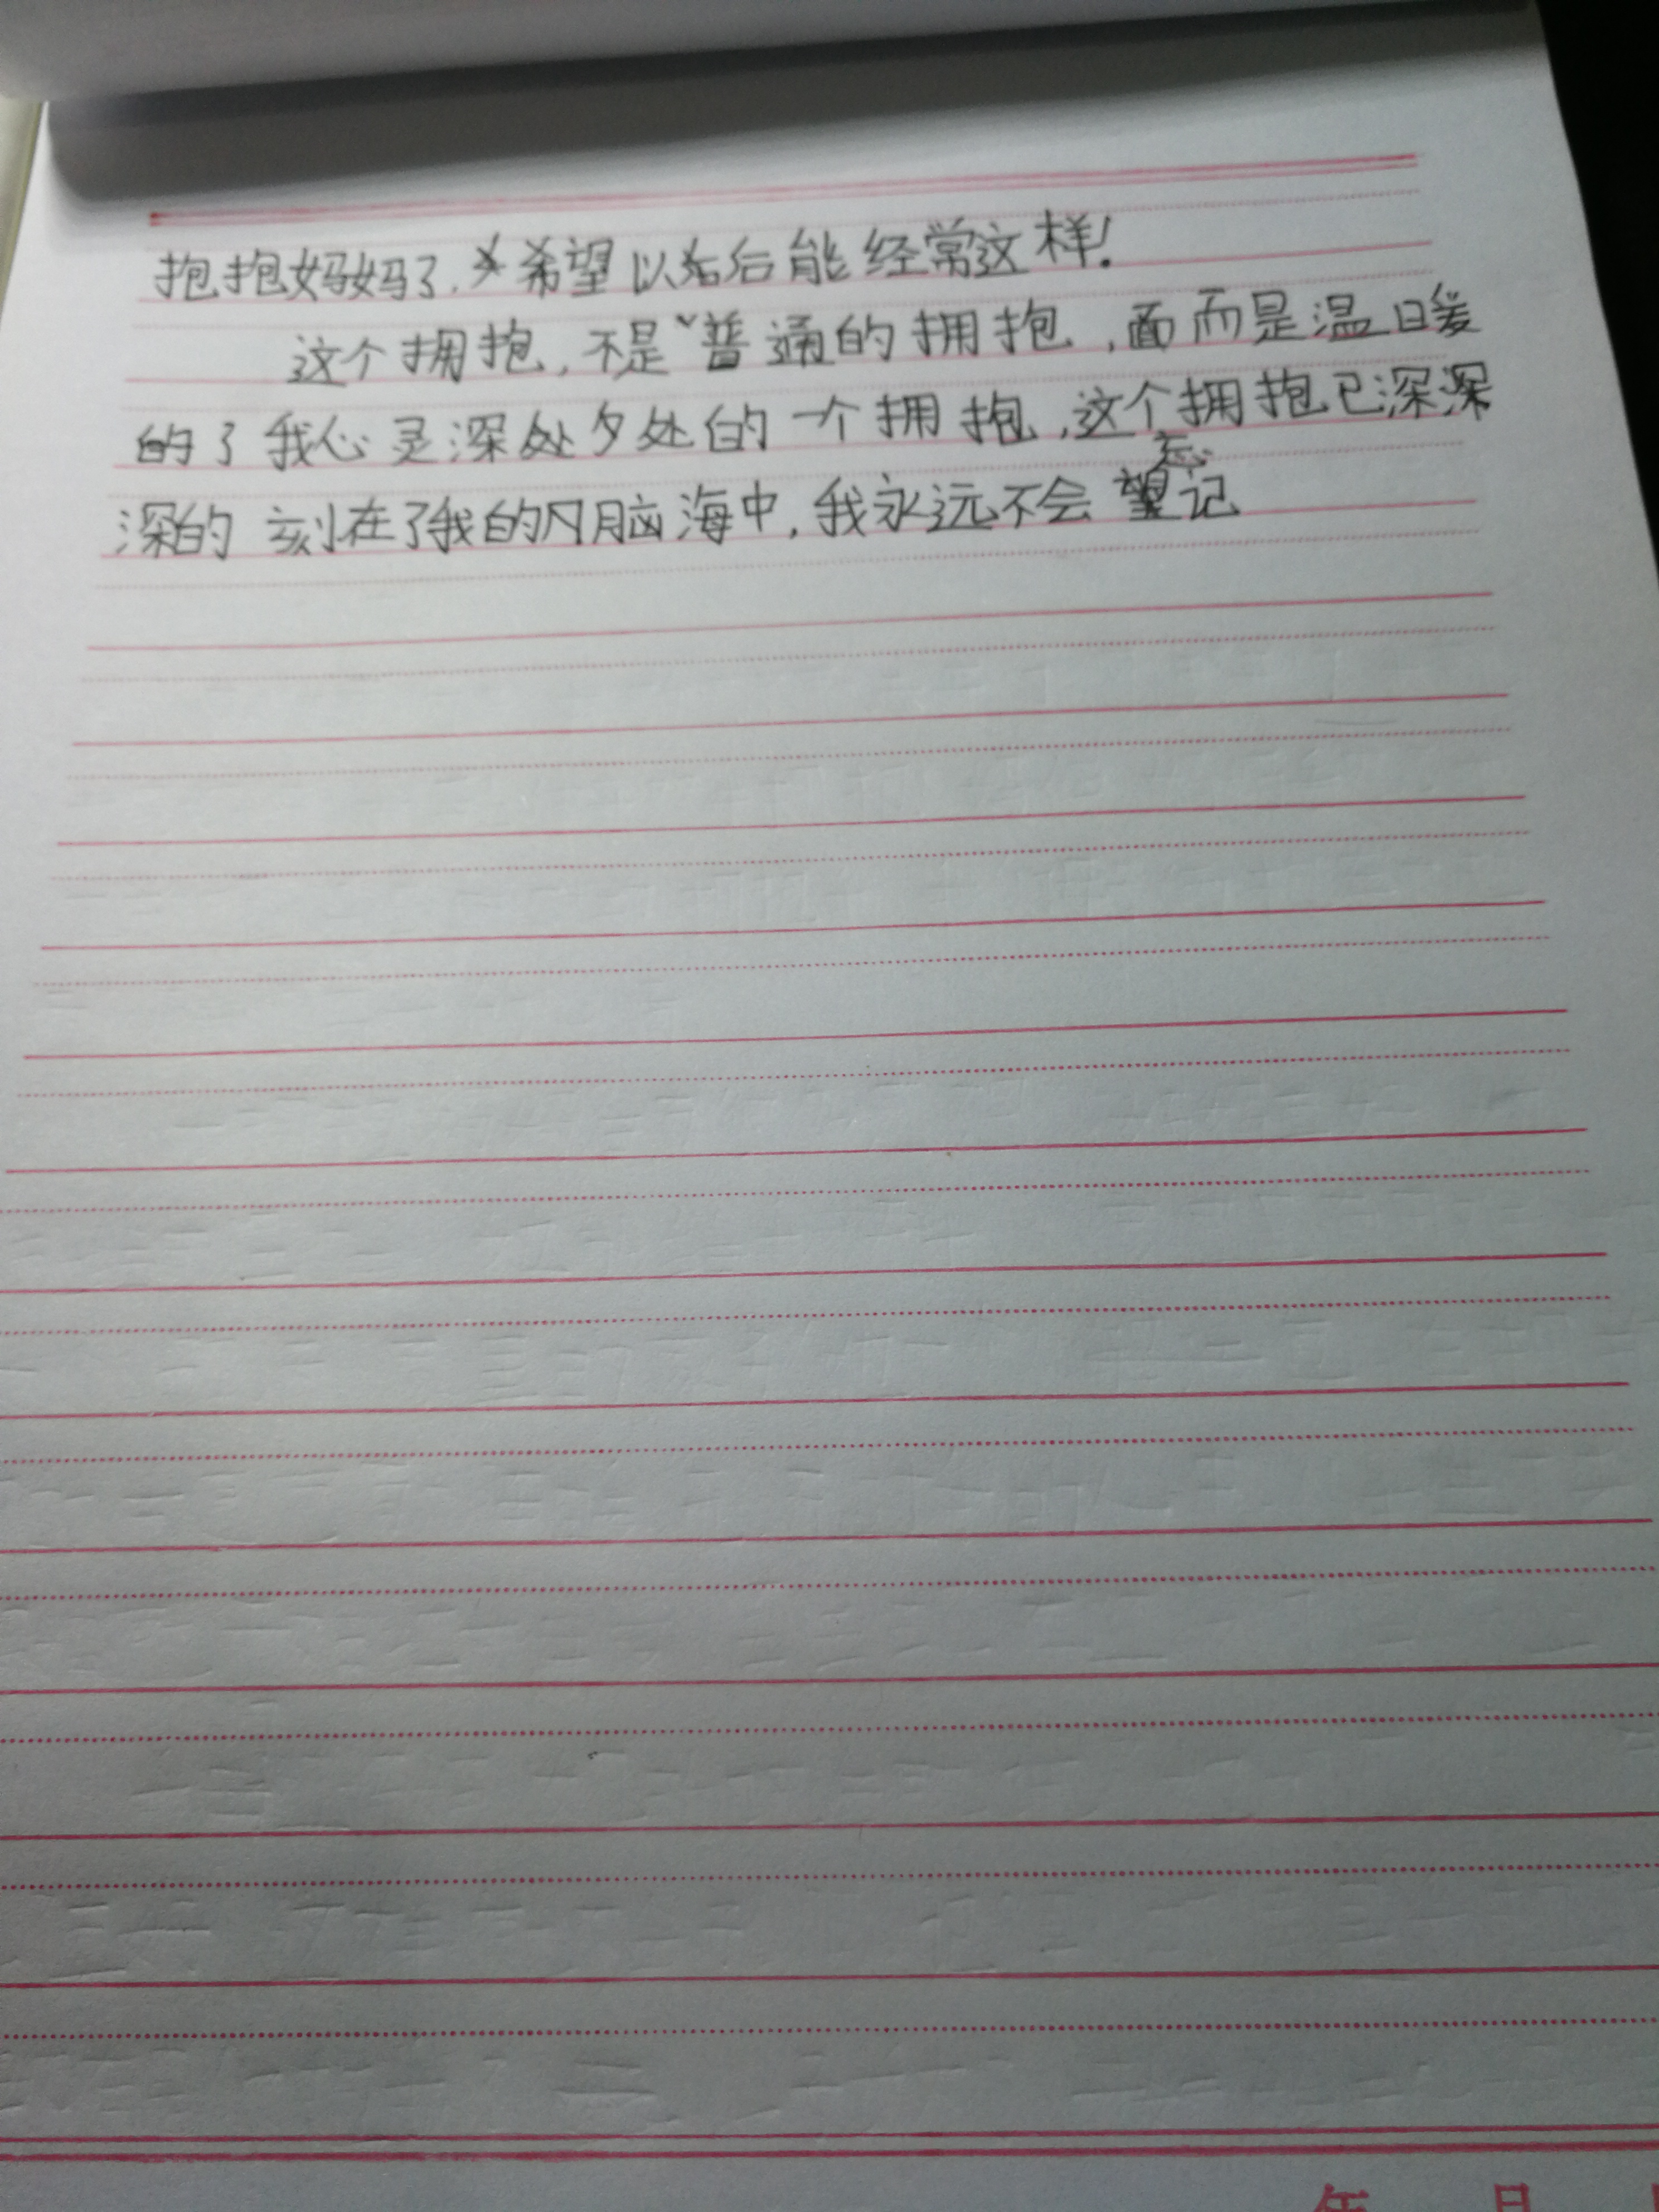 抱抱妈妈了.希望以后能经常这样!
这个拥抱,不是普通的拥抱,面而是温暖
的了我心灵深处夕处的一个拥抱,这个拥抱已深深
深的刻在了我的月脑海中,我永远不会忘记
年 月